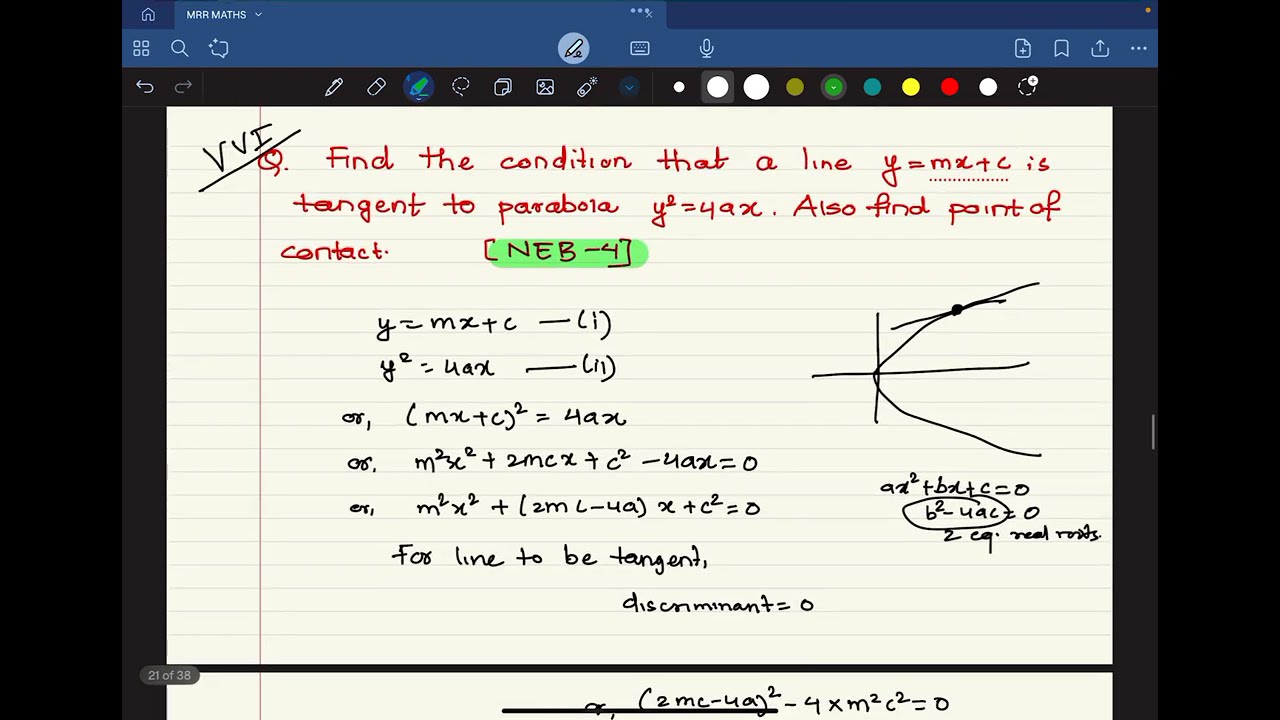 MRR MATHS
VVI
Q. Find the condition that a line y=mx+c is
tangent to parabola y²=4ax. Also find point of
contact. [NEB-4]
y=mx+c —(i)
y² = 4ax —(ii)
or, (mx+c)² = 4ax
or, m²x² + 2mcx + c² -4ax=0
or, m²x² + (2mc-4a) x + c²=0
ax²+bx+c=0
b²-4ac=0
2 eq. real roots.
For line to be tangent,
discriminant = 0
21 of 38
or, (2mc-4a)² - 4×m²c²=0